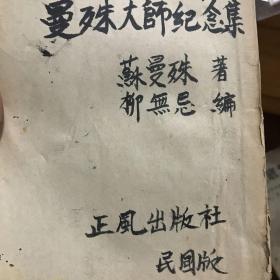 曼殊大師紀念集
蘇曼殊 著
柳無忌 編
正風出版社
民国版